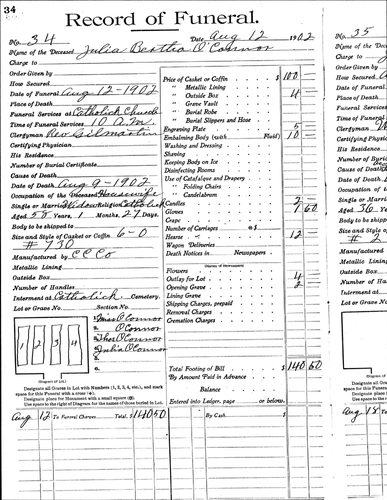 34
Record of Funeral.
No. 34
Date, Aug 12 1902
Name of the Deceased, Julia Bertha O'Connor
Charge to
Order Given by
How Secured
Date of Funeral Aug 12-1902
Place of Death
Funeral Services at Catholick Church
Time of Funeral Services 10 a.m.
Clergyman Rev Gilmartin
Certifying Physician
His Residence
Number of Burial Certificate
Cause of Death
Date of Death Aug 9-1902
Occupation of the Deceased Housewife
Single or Married Widow Religion Catholick
Aged 58 Years, 1 Months, 27 Days.
Body to be shipped to
Size and Style of Casket or Coffin 6-0
# 730
Manufactured by C C Co
Metallic Lining
Outside Box
Number of Handles
Interment at Catholick Cemetery.
Lot or Grave No. Section No.
1 2 3 4
(Diagram of Lot.)
1. Miss O'Connor
2. O'Connor
3. Thos O'Connor
4. Julia O'Connor
Designate all Graves in Lot with Numbers (1, 2, 3, 4, etc.), and mark
space for this Funeral with a cross (+).
Designate place for Monument with a small square (□).
Use space to the right of Diagram for the names of those buried in Lot.
Price of Casket or Coffin $ 100
" Metallic Lining
" Outside Box 4
" Grave Vault
" Burial Robe
" Burial Slippers and Hose
Engraving Plate 5
Embalming Body (with Fluid) 10
Washing and Dressing
Shaving
Keeping Body on Ice
Disinfecting Rooms
Use of Catafalque and Drapery
" Folding Chairs
" Candelabrum
Candles 2
Gloves 1 60
Crape
Number of Carriages @ $
Hearse 12
Wagon Deliveries
Death Notices in Newspapers
(Names of Newspapers)
Flowers
Outlay for Lot 4
Opening Grave 2
Lining Grave
Shipping Charges, prepaid
Removal Charges
Cremation Charges
Total Footing of Bill $ 140 60
By Amount Paid in Advance
Balance
Entered into Ledger, page or below.
Aug 12 To Funeral Charges, Total, $ 140 50
By Cash $
35
No. 35
Charge to
Order
How Secured
Date of
Place of
Funeral
Time of
Certifying
His Residence
Number of
Cause of
Date of
Occupation
Single or
Aged 36
Body to be
Size and
# 2
Metallic
Outside
Number of
Interment
Lot or
1
(Diagram
Aug 18